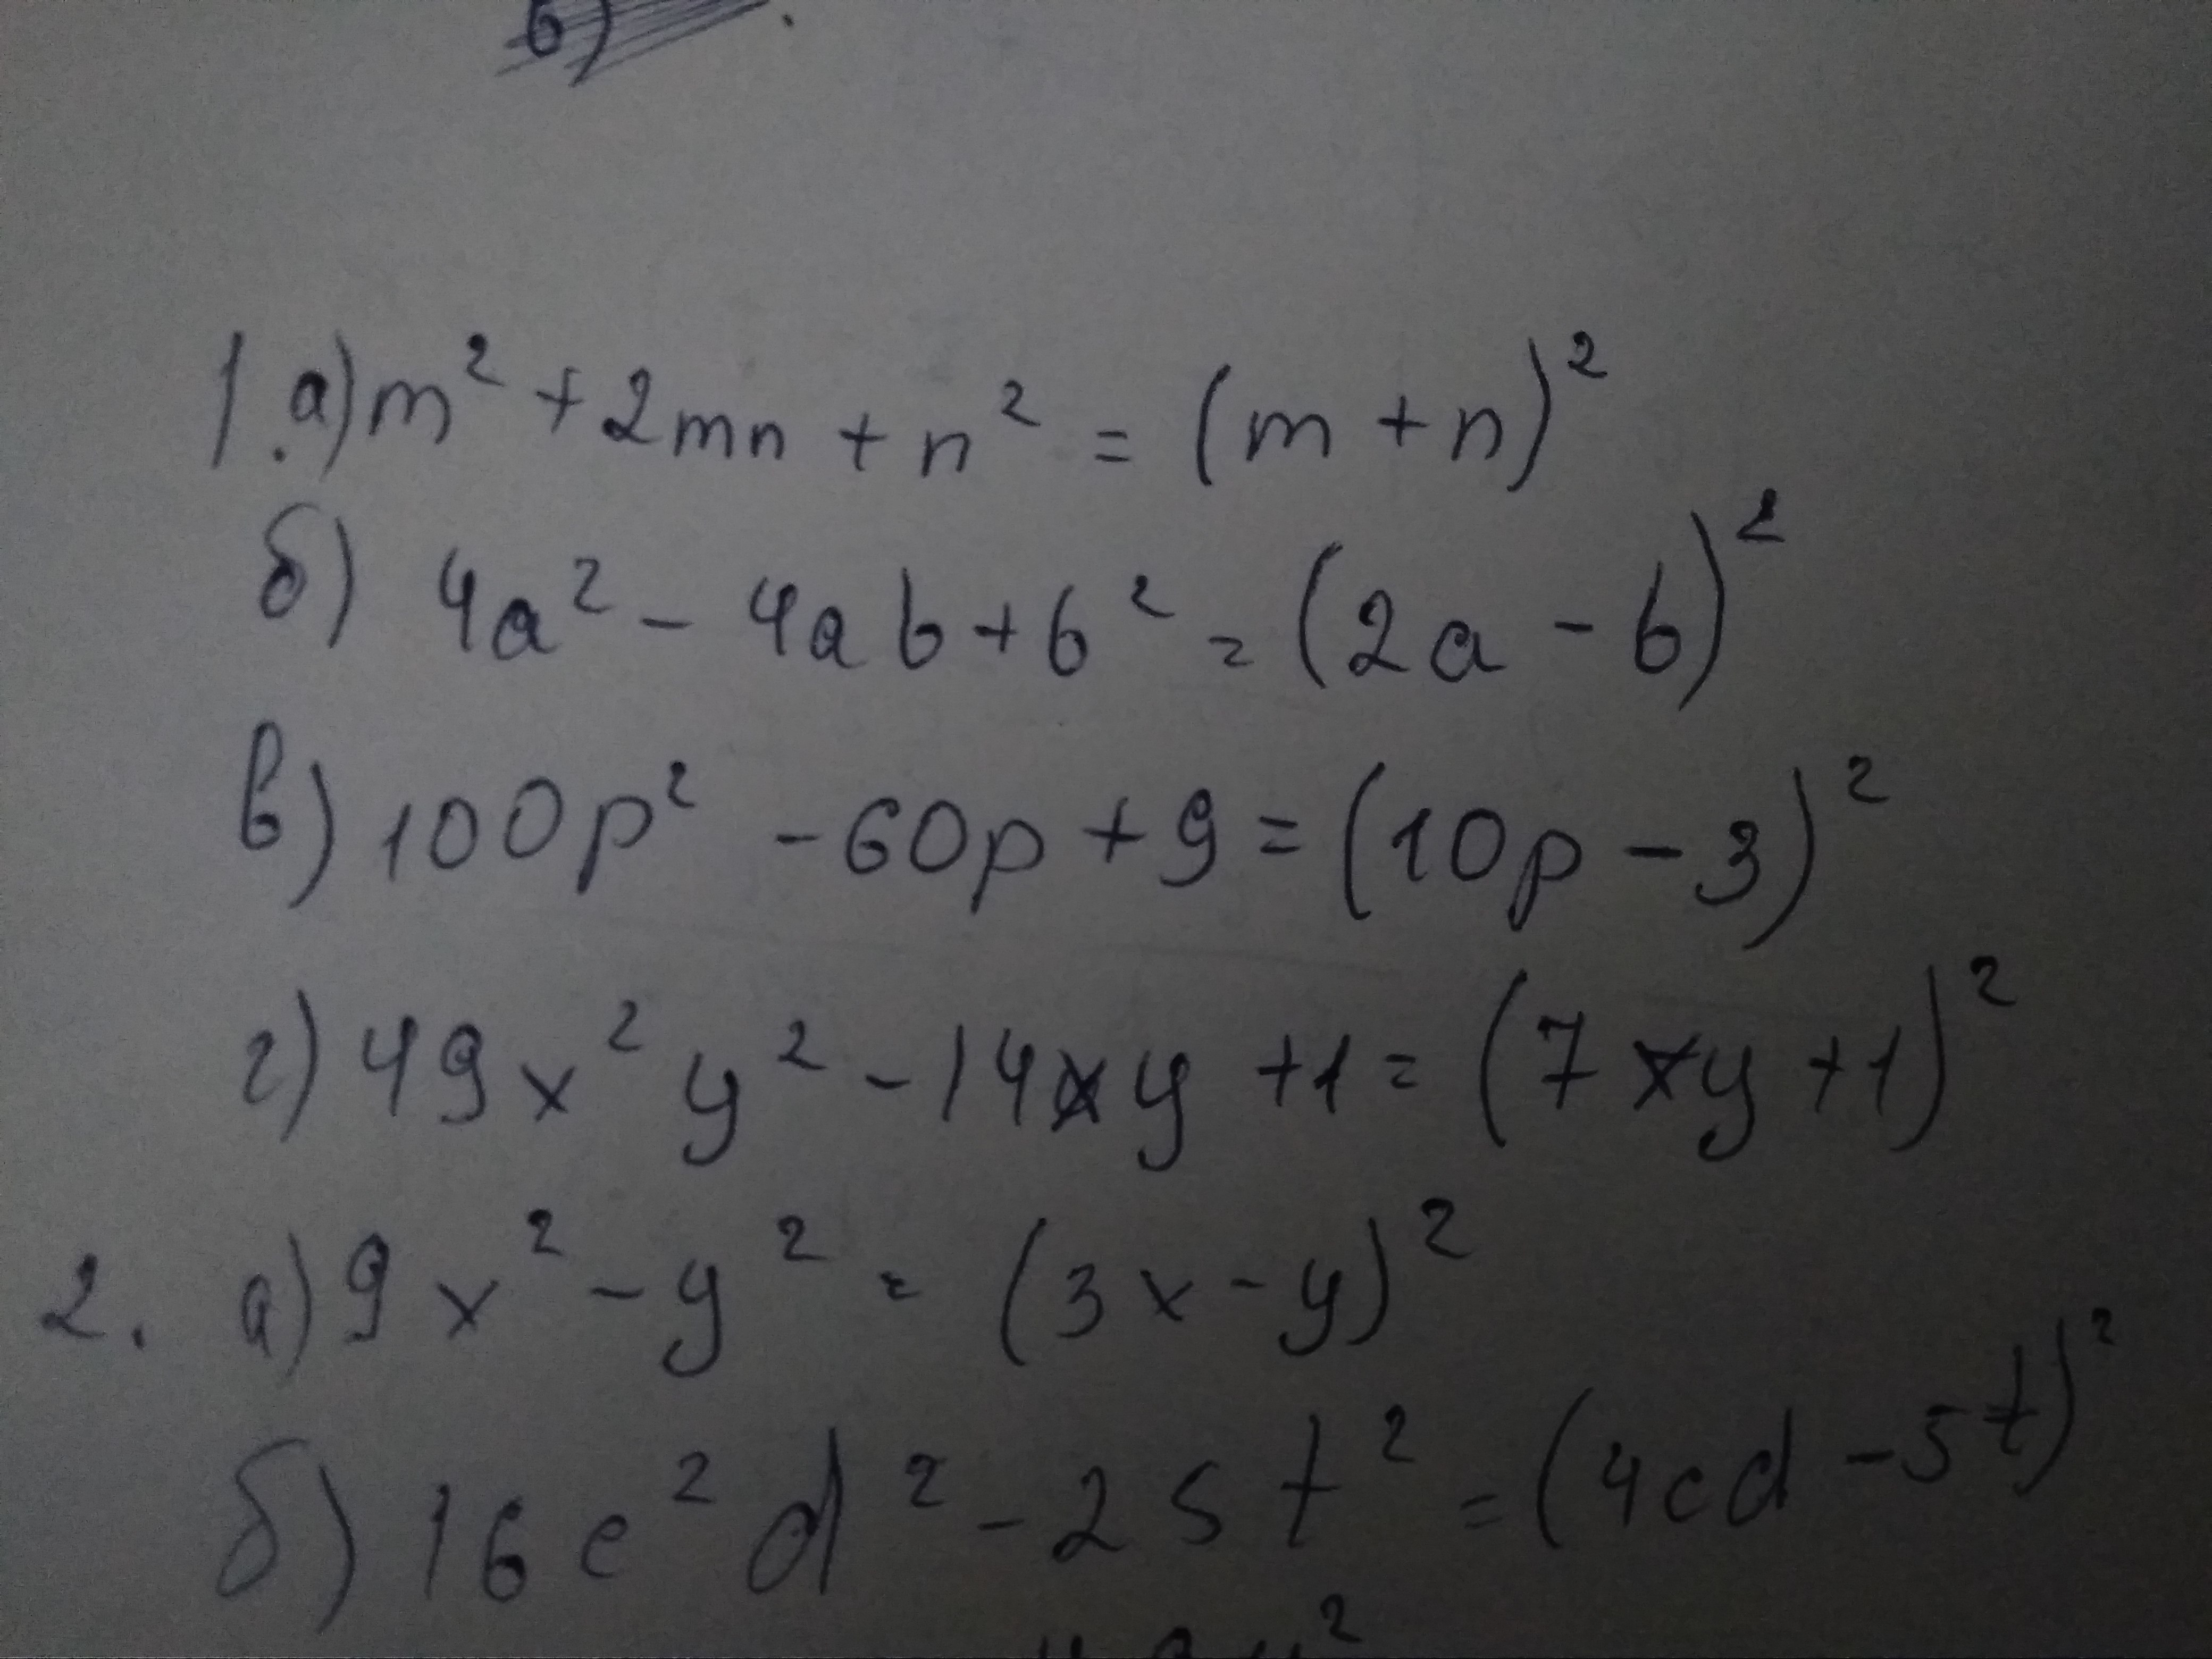 в)
1. а) m² + 2mn + n² = (m + n)²
б) 4a² - 4ab + b² = (2a - b)²
в) 100p² - 60p + 9 = (10p - 3)²
г) 49x²y² - 14xy + 1 = (7xy + 1)²
2. а) 9x² - y² = (3x - y)²
б) 16c²d² - 25t² = (4cd - 5t)²